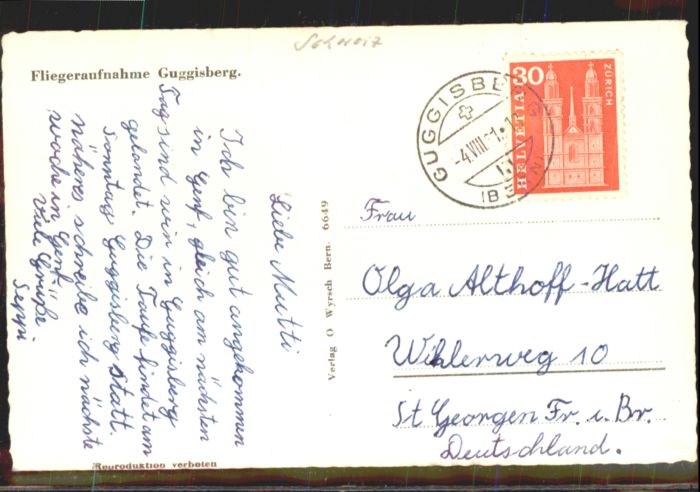 Schweiz
Fliegeraufnahme Guggisberg.
Liebe Mutti
Ich bin gut angekommen
in Genf, gleich am nächsten
Tag sind wir in Guggisberg
gelandet. Die Taufe findet am
Sonntag Guggisberg statt.
näheres schreibe ich nächste
woche in Genf."
Viele Grüße
Seppi
Verlag O Wyrsch Bern. 6649
Reproduktion verboten
GUGGISBERG
-4.VIII
(BERN)
30
HELVETIA
ZÜRICH
Frau
Olga Althoff-Hatt
Wihlerweg 10
St Georgen Fr. i. Br.
Deutschland.